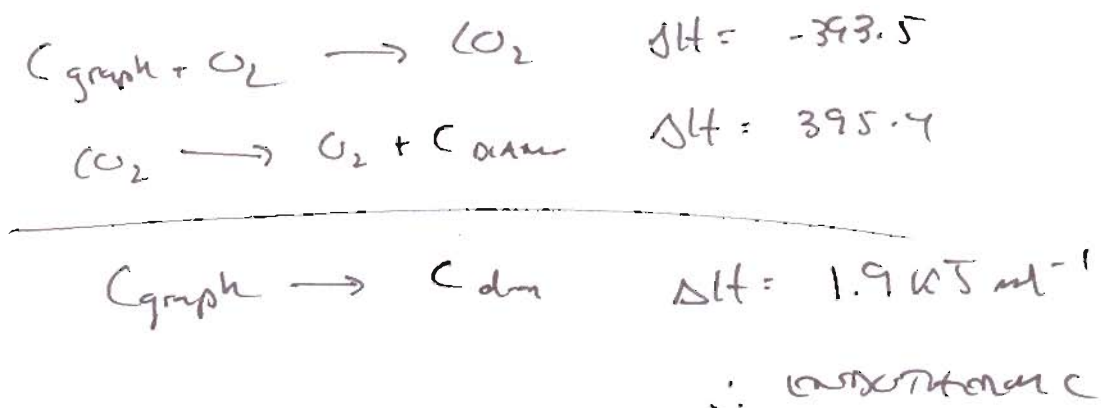 C graph + O₂ → CO₂ ΔH = -393.5
CO₂ → O₂ + C DIAM ΔH = 395.4
C graph → C dm ΔH = 1.9 KJ mol⁻¹
∴ ENDOTHERMIC